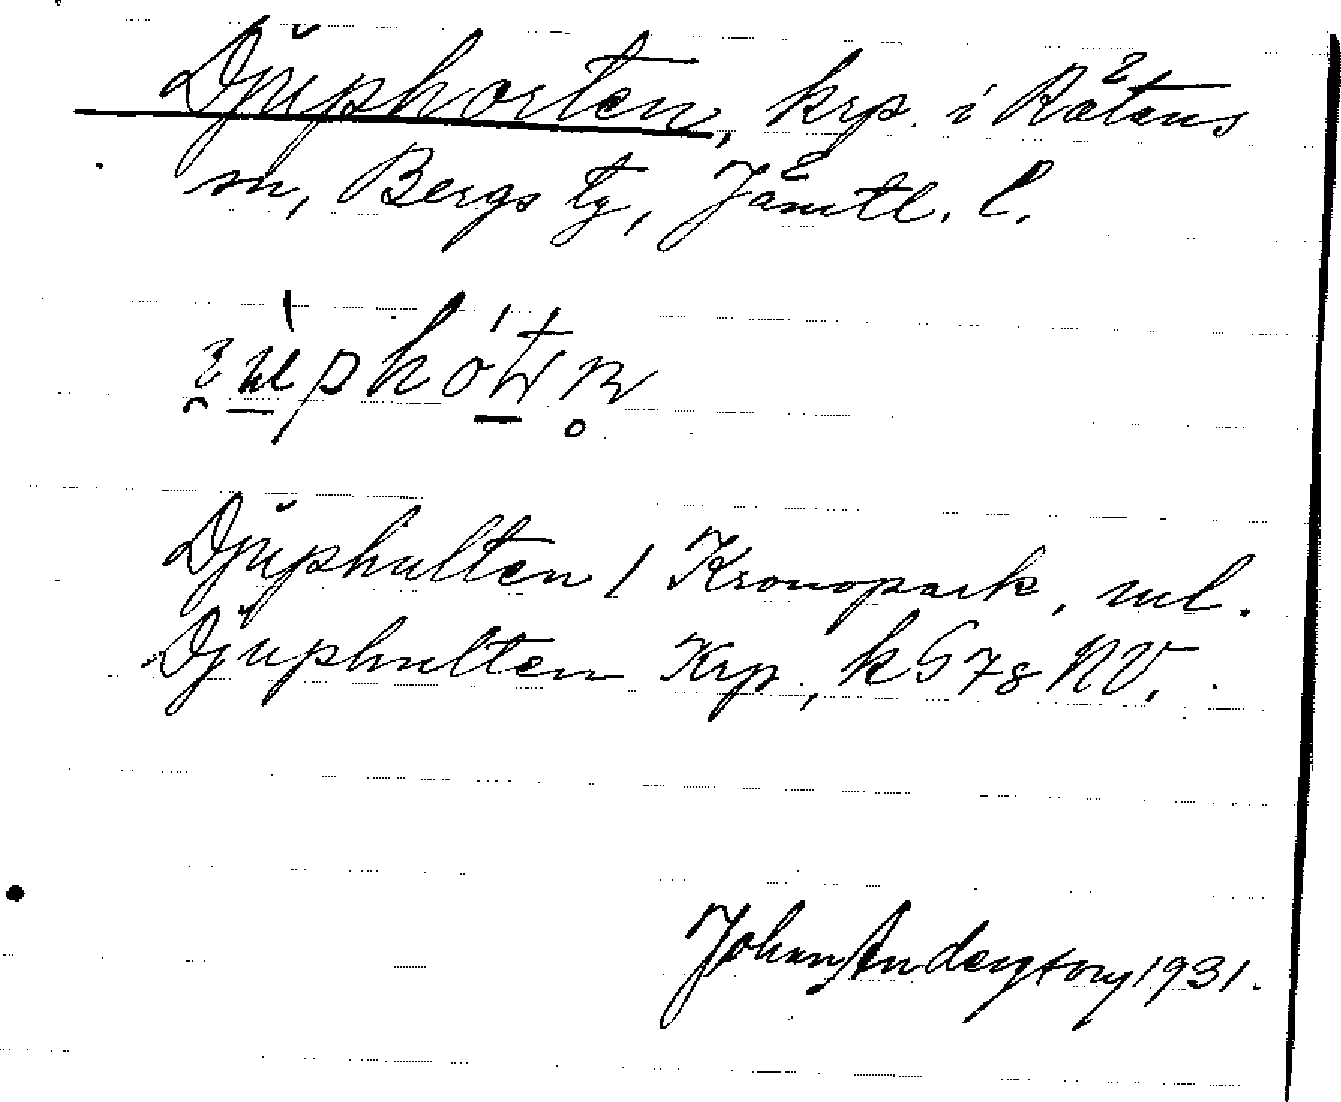 Djuphorten, krp. i Rätans
sn, Bergs tg, Jämtl. l.
Djuphulten / Kronopark, ul.
Djuphulten Krp, k 578 NV.
Johan Anderson 1931.